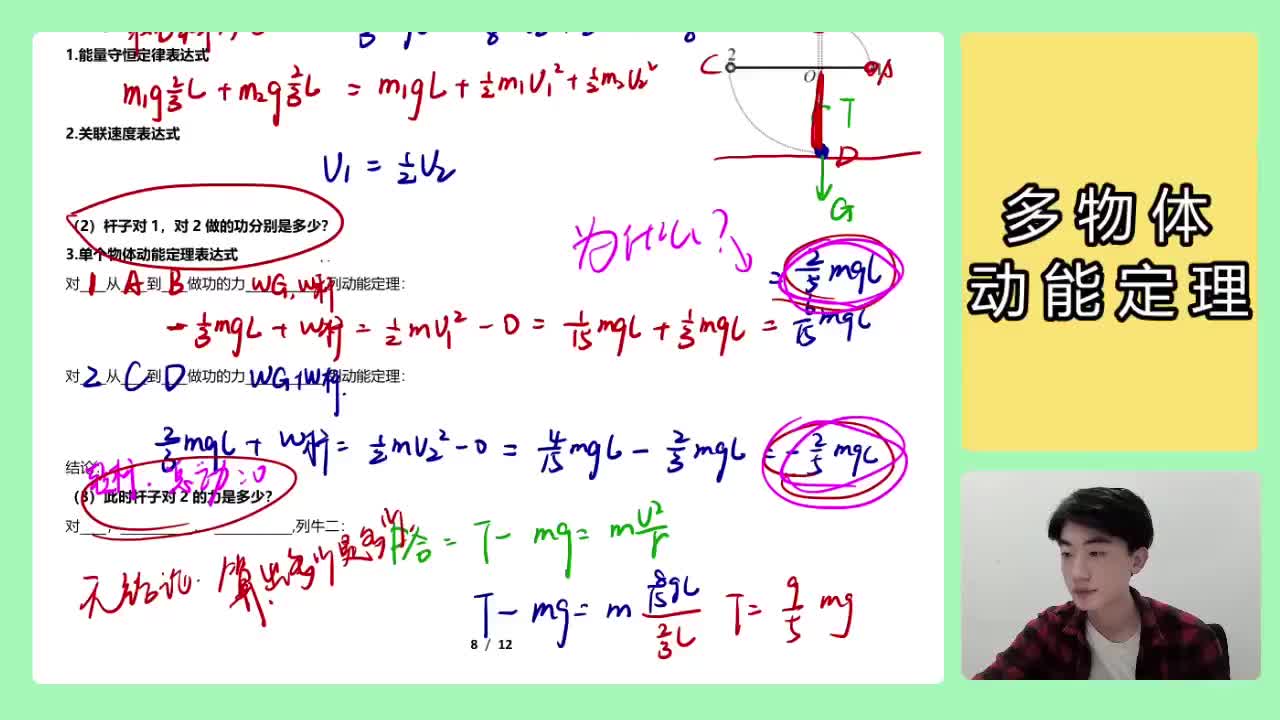 1.能量守恒定律表达式
m₁g⅔L + m₂g⅔L = m₁gL + ½m₁U₁² + ½m₂U₂²
2.关联速度表达式
U₁ = ½U₂
(2) 杆子对 1，对 2 做的功分别是多少?
3.单个物体动能定理表达式
对 1 从 A 到 B 做功的力 WG, W杆 列动能定理：
-⅓mgL + W杆 = ½mU₁² - 0 = 1/15 mgL + ⅓mgL = 6/15 mgL
= 2/5 mgL
为什么?
对 2 从 C 到 D 做功的力 WG, W杆 列动能定理：
⅔mgL + W杆 = ½mU₂² - 0 = 4/15 mgL - ⅔mgL = -2/5 mgL
结论:
总功=0
(3) 此时杆子对 2 的力是多少?
对____, ________, ________,列牛二：
F合 = T - mg = m U²/r
无结论. 算出多少是多少
T - mg = m 8/15 gL / ⅔L T = 9/5 mg
8 / 12
C
2
O
A
T
D
G
多物体
动能定理